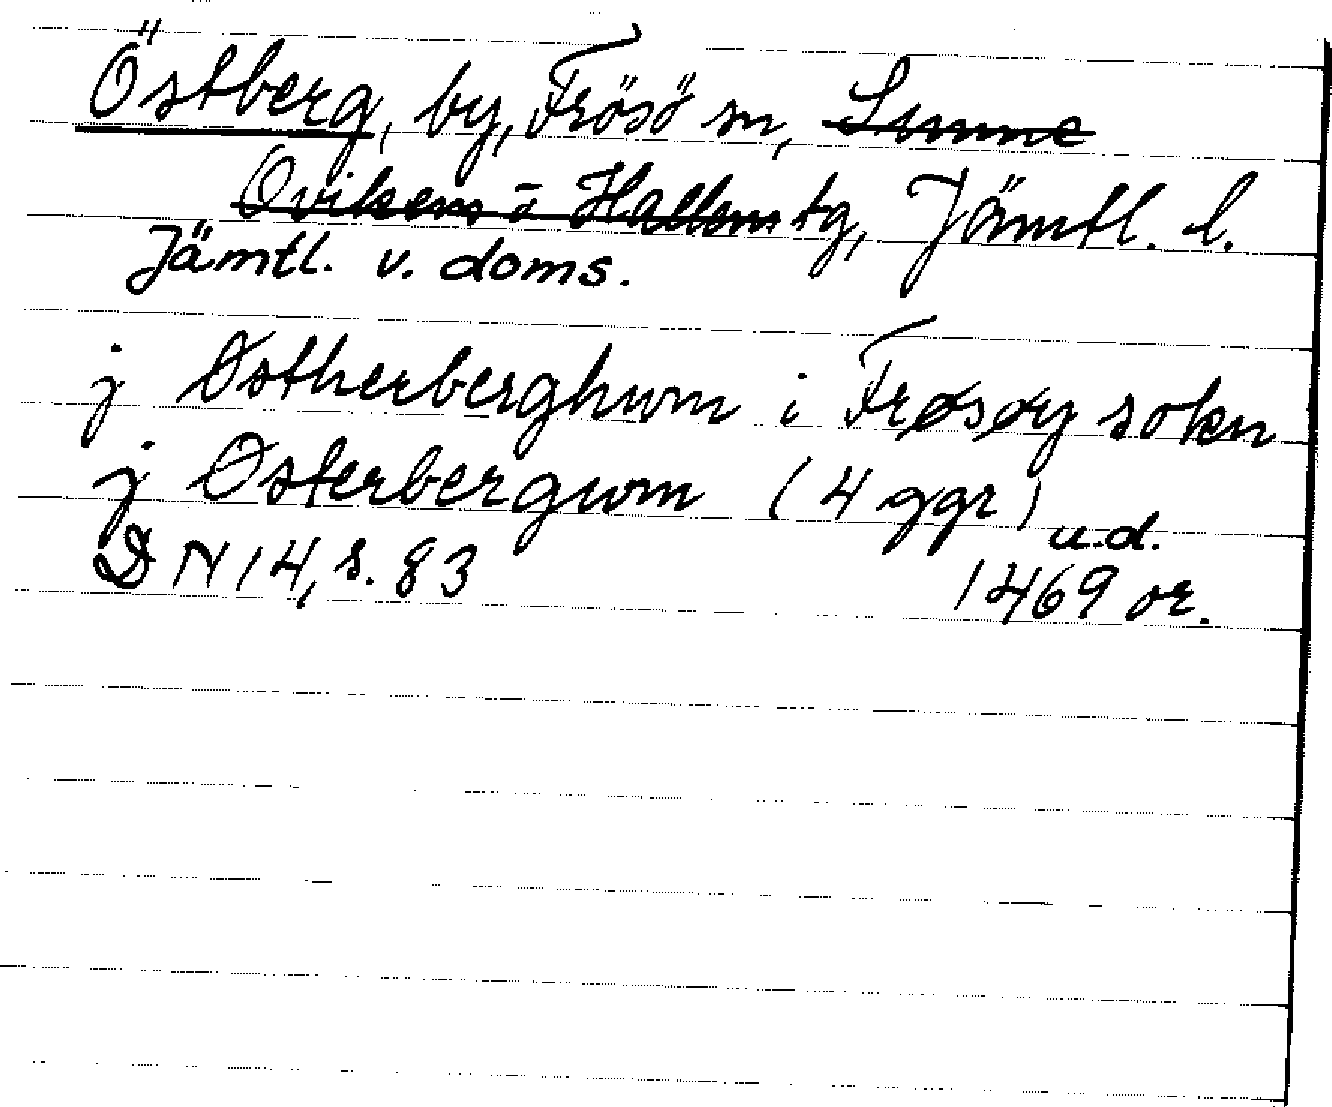 Östberg, by, Frösö sn, Sunne
Ovikens o Hallens tg, Jämtl. l.
Jämtl. v. doms.
j Østherberghum i Frøsøy sokn
j Østerbergum (4 ggr)
u.d.
DN 14, s. 83 1469 or.